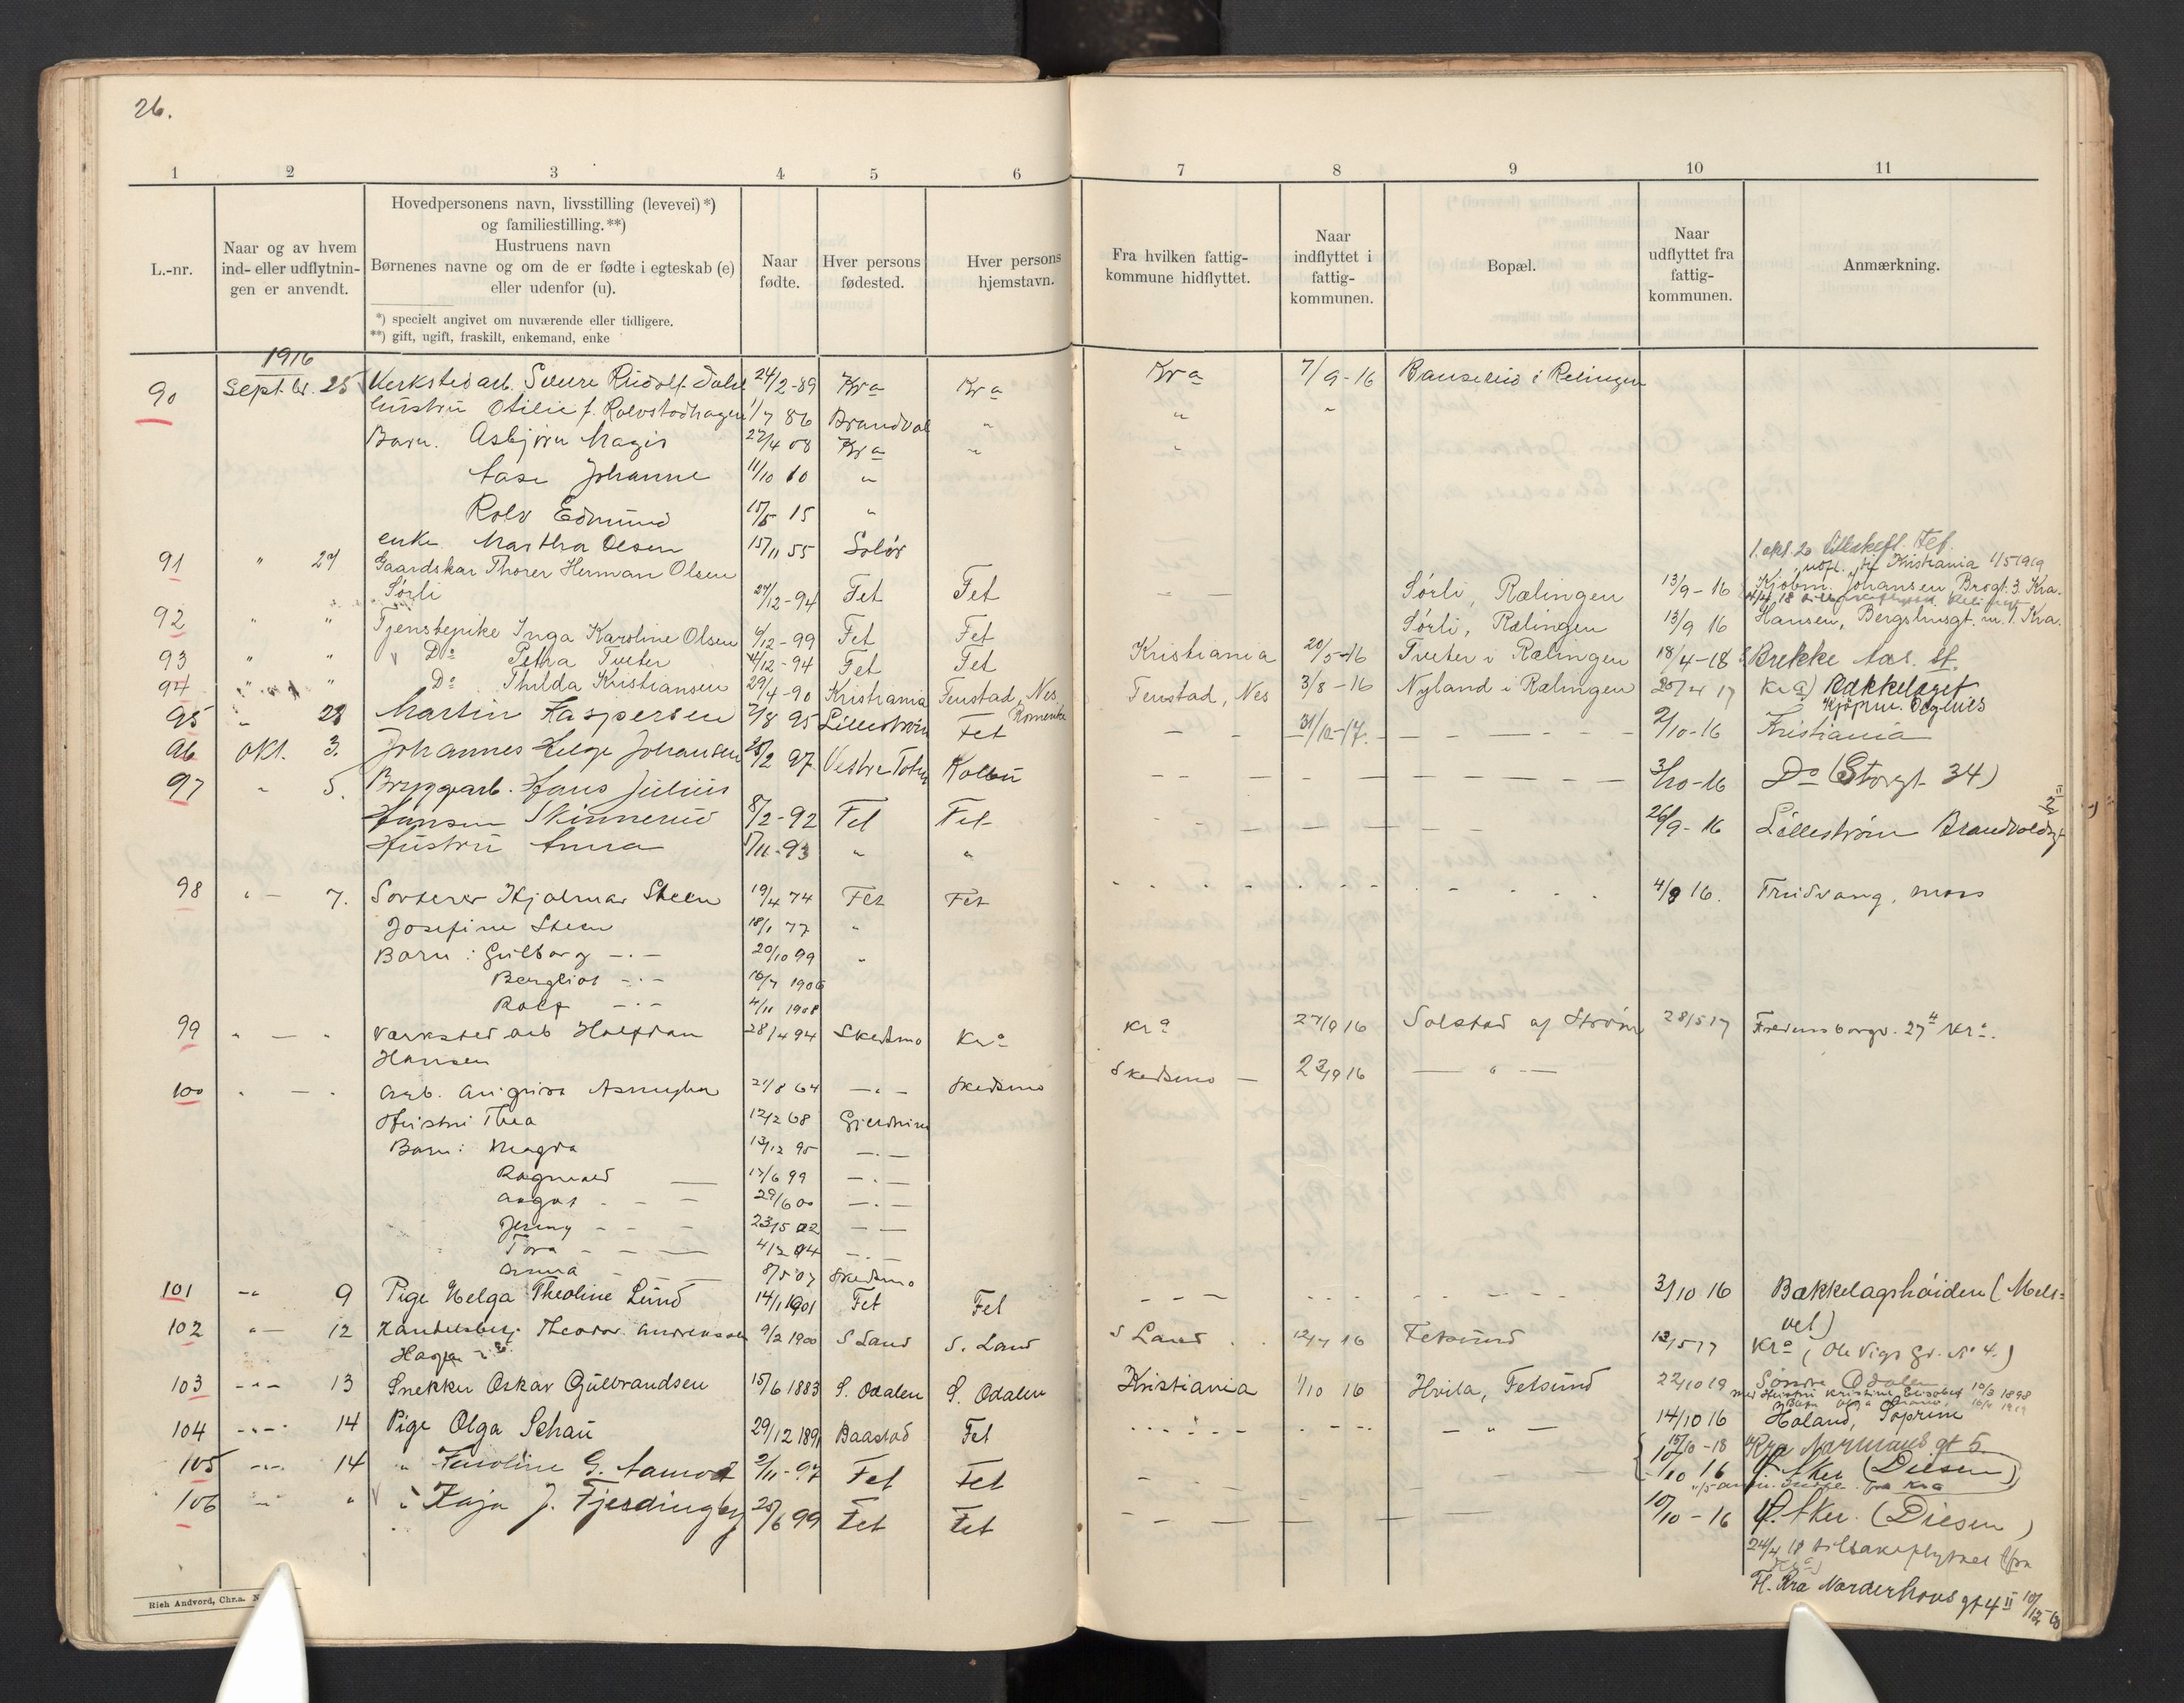 26.
1 2 3 4 5 6 7 8 9 10 11
L.-nr.
Naar og av hvem
ind- eller udflytnin-
gen er anvendt.
Hovedpersonens navn, livsstilling (levevei)*)
og familiestilling.**)
Hustruens navn
Børnenes navne og om de er fødte i egteskab (e)
eller udenfor (u).
*) specielt angivet om nuværende eller tidligere.
**) gift, ugift, fraskilt, enkemand, enke
Naar
fødte.
Hver persons
fødested.
Hver persons
hjemstavn.
Fra hvilken fattig-
kommune hidflyttet.
Naar
indflyttet i
fattig-
kommunen.
Bopæl.
Naar
udflyttet fra
fattig-
kommunen.
Anmærkning.
1916
90 Sept. br. 25 Verkstedarb. Sverre Rudolf 24/2-89 Kra Kra Kra 7/9-16 i Rælingen
Hustru Otilie f. Rolvstadhagen 1/7 86 Brandval " " "
Barn. Asbjørn Magis 27/4 08 Kra " "
Aase Johanne 11/10 10 "
Rolv Edmund 15/5 15 "
enke Martha Olsen 15/11 55 Solør
1. okt. 20 tilbakefl. Fet.
91 " 27 Gaardskar Thorer Herman Olsen udfl. til Kristiania 1/5 1919
Sørli 27/12-94 Fet Fet — — Sørli, Rælingen 13/9-16 Kjøbm. Johansen Brogt. 3. Kra.
92 " " Tjenstepike Inga Karoline Olsen 6/12-99 Fet Fet Sørli, Rælingen 13/9 16 Hansen, Bergslusgt. nr. 1. Kra.
93 " " Do Petra Tveter 4/12-94 Fet Fet Kristiania 20/5-16 Tveter i Rælingen 18/4-18 Brekke Aas. st.
94 " " Do Thilda Kristiansen 29/4-90 Kristiania Fenstad, Nes Fenstad, Nes 3/8-16 Nyland i Rælingen 20/4 17 Kra) Bækkelaget
Romerike
95 " 28 Martin Kaspersen 2/8 95 Lilleström Fet — — 31/10-17. — — — 2/10-16 Kristiania
96 Okt. 3. Johannes Helge Johansen 25/2 97 Vestre Toten Kolbu — — — — 3/10-16 Do (Storgt. 34)
97 " 5. Bryggarb. Hans Julius
Hansen Skinnerud 8/2-92 Fet Fet — — — — 26/9-16 Lilleström Brandvoldgt
Hustru Anna 17/11-93 " "
98 " — 7. Sorterer Hjalmar Steen 19/4 74 Fet Fet 4/9 16. Trudvang, moss
Josefine Steen 18/1 77 "
Barn: Gulborg — " — 20/10 99 "
Bergliot — " — 16/7 1906
Rolf — " — 4/10 1908
99 " — " Værksted arb Halfdan 28/4 94 Skedsmo Kra Kra 27/9 16 Solstad af Strøm 28/5 17 Fredensborgv. 27 4 Kra.
Hansen
100 " — " Arb. Asmyhr 21/8 64 — " — Skedsmo Skedsmo — 23/9 16 — " —
Hustru Thea 12/2 68 Gjerdrum
Barn: Magda 13/12 95 — " —
Ragnvald — 17/6 99 — " —
August — — 29/6 00 — " —
Jenny — — — 23/5 02 — —
Tora — — — 4/2 04 — " —
Anna — — 8/5 07 Skedsmo
101 — " 9 Pige Helga Theoline Lund 14/1 1901 Fet Fet — — — 3/10 16 Bækkelagshøiden (Mels=
vel)
102 " — 12 Handelsbetj. Theodor. Andreassen 9/2 1900 S Land S. Land S Land 12/4 16 Fetsund 12/5 17 Kra (Ole Vigs gd. No 4.)
103 — " — 13 Snekker Oskar Gulbrandsen 15/6 1883 S. Odalen S. Odalen Kristiania 1/10 16 Hvila, Fetsund 22/10 19 Søndre Odalen
med Hustru Kristine Elisabet 10/3 1898
104 — " — 14 Pige Olga Schau 29/12 1891 Baastad Fet — " — 14/10 16 Høland, Toprem
15/10-18 Kra Normans gt 5.
105 — " — 14 " Karoline G. Aamodt 2/11-97 Fet Fet 10/10 16 Aker (Diesen)
106 — " — " " Kaja J. Fjerdingby 25/6 99 Fet Fet — — — — 10/10-16 Aker. (Diesen)
24/4 18 tilbakeflyttet fra
Fl. Kra Norderhovs gt 4 II 10/12-18
Rich Andvord, Chr.a.